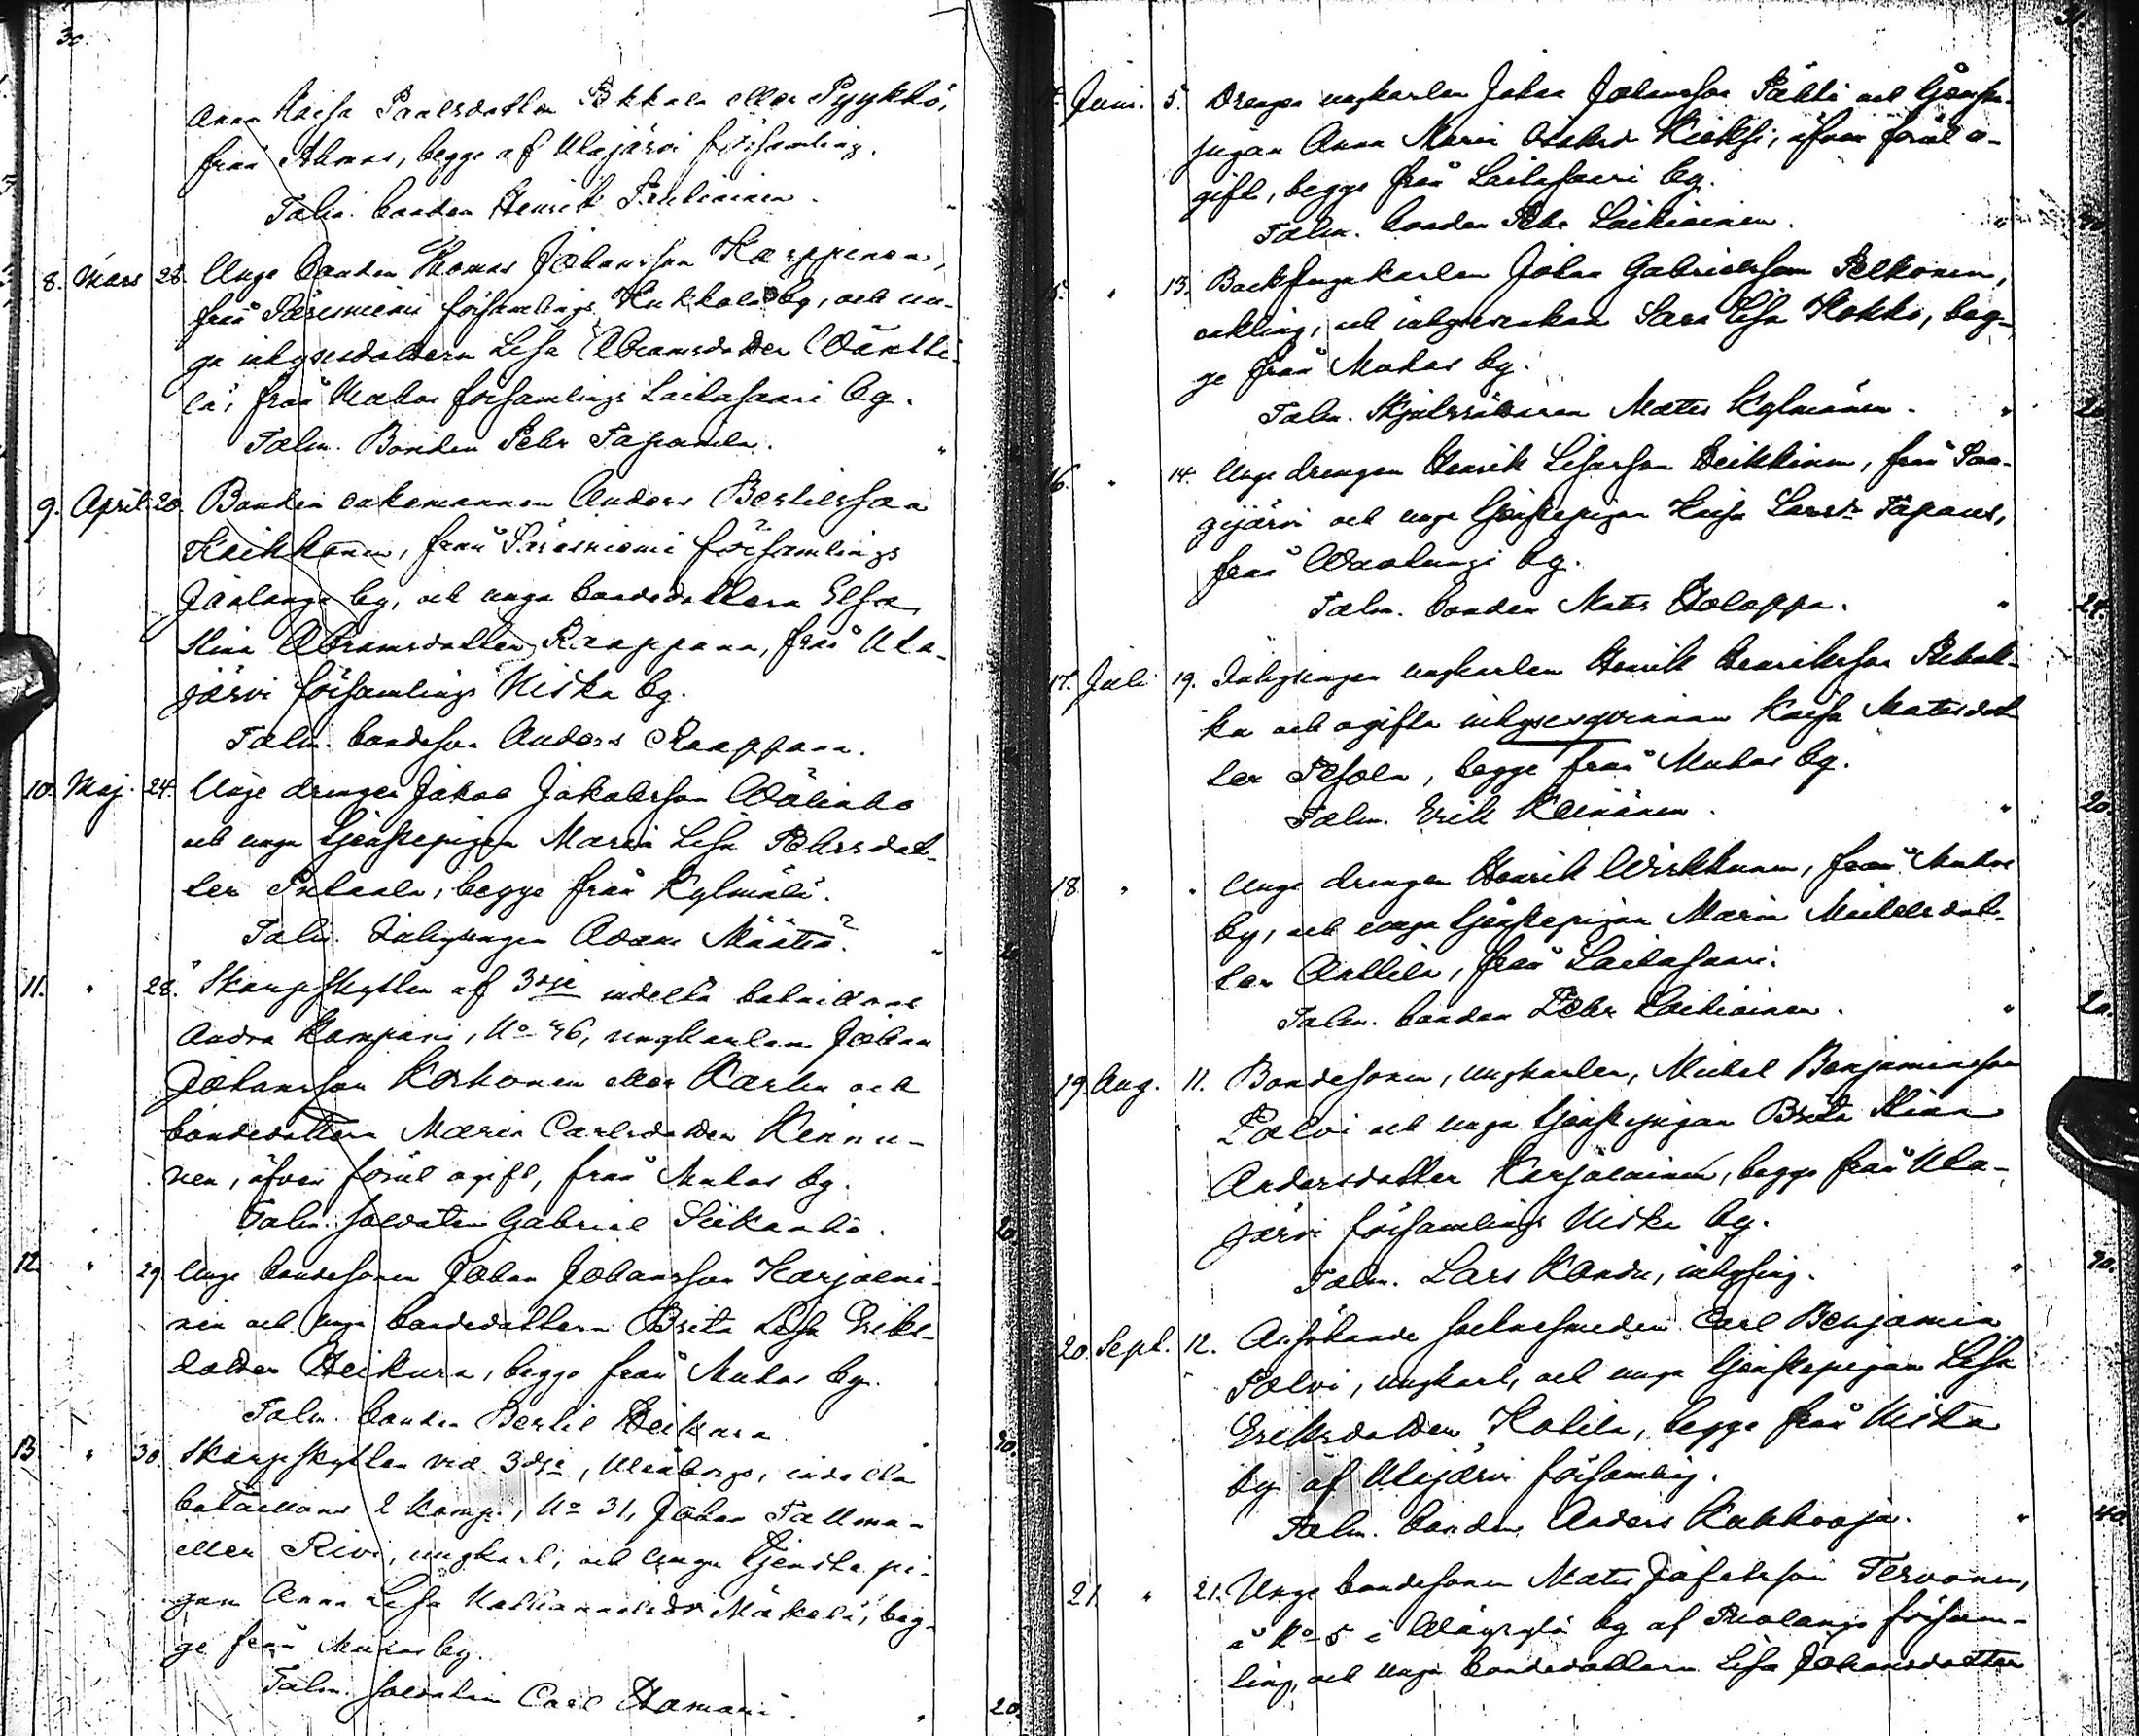 30.
Anna Kaisa Paulsdotter Pekkala eller Pyykkö,
från Ahmas, begge af Uleåjärvi församling.
Talm. bonden Henrik Pentininen. "
8. Mars 28. Unge bonden Thomas Johansson Karppinen,
från Säresniemi församlings Kukkola by, och un-
ga inhysesdottern Lisa Abramsdotter Wäntti-
lä, från Muhos församlings Laitasaari by.
Talm. Bonden Pehr Tapanila. "
9. April 20. Bonden enkemannen Anders Bertilsson
Heikkinen, från Säresniemi församlings
Jaalanga by, och unga bondedottern Elsa
Stina Abramsdotter Raappana, från Ula-
järvi församlings Niska by.
Talm. bondeson Anders Raappana.
10. Maj. 24. Unge drengen Jakob Jakobsson Wälitalo
och unga tjenstepigan Maria Lisa Pehrsdot-
ter Pukaala, begge från Kylmälä.
Talm. Inhysingen Adam Määttä. "
11. " 28. Skarpskytten af 3dje indelta bataillons
andra kompani, No 46, ungkarlen Johan
Johansson Korhonen eller Karlin och
bondedottern Maria Carlsdotter Keinä-
nen, äfven förut ogift, från Muhos by.
Talm. soldaten Gabriel Siikanto. 20.
12. " 29 Unge bondesonen Johan Johansson Karjalai-
nen och unga bondedottern Brita Lisa Eriks-
dotter Heikura, begge från Muhos by.
Talm. bonden Bertil Heikura " 40.
13. " 30. Skarpskytten vid 3dje, Uleåborgs, indelta
bataillons 2 komp., No 31, Johan Tallma-
eller Rivi, ungkarl, och unga tjenstepi-
gan Anna Lisa Mäkelä, beg-
ge från Muhos by.
Talm. soldaten Carl Hamari. " 20.
31.
Juni. 5. Drengen ungkarlen Johan Johansson Pähti och tjenste-
pigan Anna Maria Kieksi, äfven förut o-
gift, begge från Laitasaari by.
Talm. bonden Pehr Laitiainen. " 40
15. " 13. Backstugukarlen Johan Gabrielsson Pelkonen,
enkling, och inhysesenkan Sara Lisa Kokko, beg-
ge från Muhos by.
Talm. Skjutsrättaren Mats Kylmänen. " 20.
16. " 14. Unge drengen Henrik Heikkinen, från San-
gijärvi och unga tjenstepigan Kaisa Larsdr Tapani,
från Waalungi by.
Talm. bonden Mats Holappa. " 24.
17. Juli 19. Inhysingen ungkarlen Henrik Henriksson Pikak-
ka och ogifta inhysesqvinnan Kaisa Matsdot-
ter Pesola, begge från Muhos by.
Talm. Erik Keinänen. " 20.
18 " " Unge drengen Henrik Wirkkunen, från Muhos
by, och unga tjenstepigan Maria Mickelsdot-
ter Anttila, från Laitasaari.
Talm. bonden Pehr Laitiainen. " 20.
19. Aug. 11. Bondesonen, ungkarlen, Mickel Benjaminsson
Palvi och unga tjenstepigan Brita Stina
Andersdotter Karjalainen, begge från Ula-
järvi församlings Niska by.
Talm. Lars Kandu, inhysing. " 40.
20. Sept. 12. Ansökande sockensmeden Carl Benjamin
Palvi, ungkarl, och unga tjenstepigan Lisa
Eriksdotter Kotila, begge från Niska
by af Ulejärvi församling.
Talm. bonden Anders Kukkoaja. " 40.
21. " 21. Unge bondesonen Mats Josefsson Tervonen,
å No 5 i Wäyrylä by af Puolango försam-
ling, och unga bondedottern Lisa Johansdotter